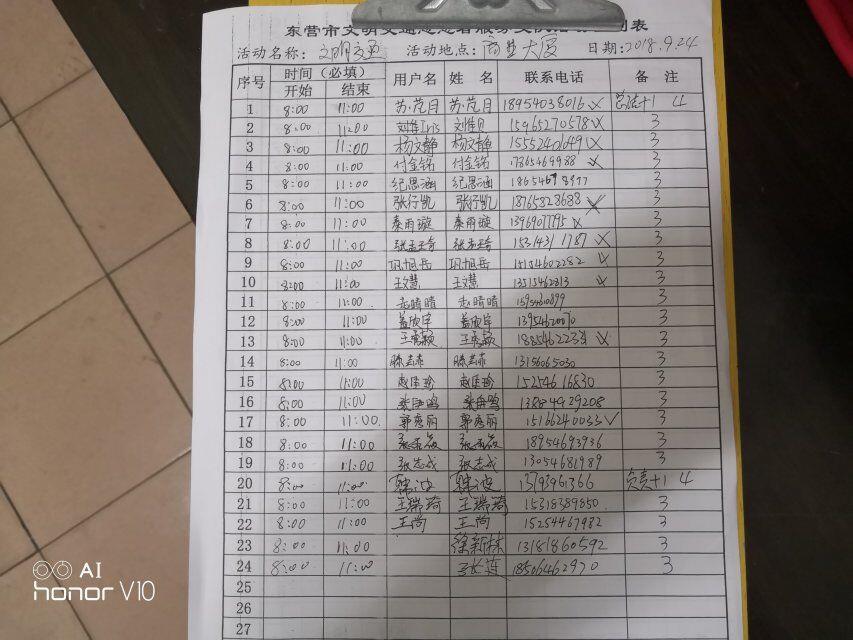 东营市文明交通志愿者服务
表
活动名称：文明交通 活动地点：商业大厦 日期：2018.9.24
序号 时间（必填） 用户名 姓名 联系电话 备注
开始 结束
1 8:00 11:00 苏范月 苏范月 18954038016 × +1 4
2 8:00 11:00 刘佳Iris 刘佳 15965270578 × 3
3 8:00 11:00 杨文静 杨文静 15552401649 × 3
4 8:00 11:00 付金铭 付金铭 × 3
5 8:00 11:00 纪思涵 纪思涵 3
6 8:00 11:00 张行凯 张行凯 18765828688 × 3
7 8:00 11:00 秦雨璇 秦雨璇 × 3
8 8:00 11:00 张孟琦 张孟琦 15314311787 × 3
9 8:00 11:00 巩旭岳 巩旭岳 15154602282 × 3
10 8:00 11:00 王文慧 王文慧 13515462813 × 3
11 8:00 11:00 赵晴晴 赵晴晴 3
12 8:00 11:00 盖欣宇 盖欣宇 13954620070 3
13 8:00 11:00 王秀颖 王秀颖 × 3
14 8:00 11:00 13156065030 3
15 8:00 11:00 赵佳珍 赵佳珍 15254616830 3
16 8:00 11:00 13884929208 3
17 8:00 11:00 郭秀丽 郭秀丽 15166240033 ✓ 3
18 8:00 11:00 18954693936 3
19 8:00 11:00 张志成 张志成 13054681989 3
20 8:00 11:00 韩波 韩波 13793961366 负责+1 4
21 8:00 11:00 王瑞琦 王瑞琦 15318389850 3
22 8:00 11:00 王尚 王尚 15254467982 3
23 8:00 11:00 徐新栋 13181860592 3
24 8:00 11:00 18506462970 3
25
26
27
AI
honor V10